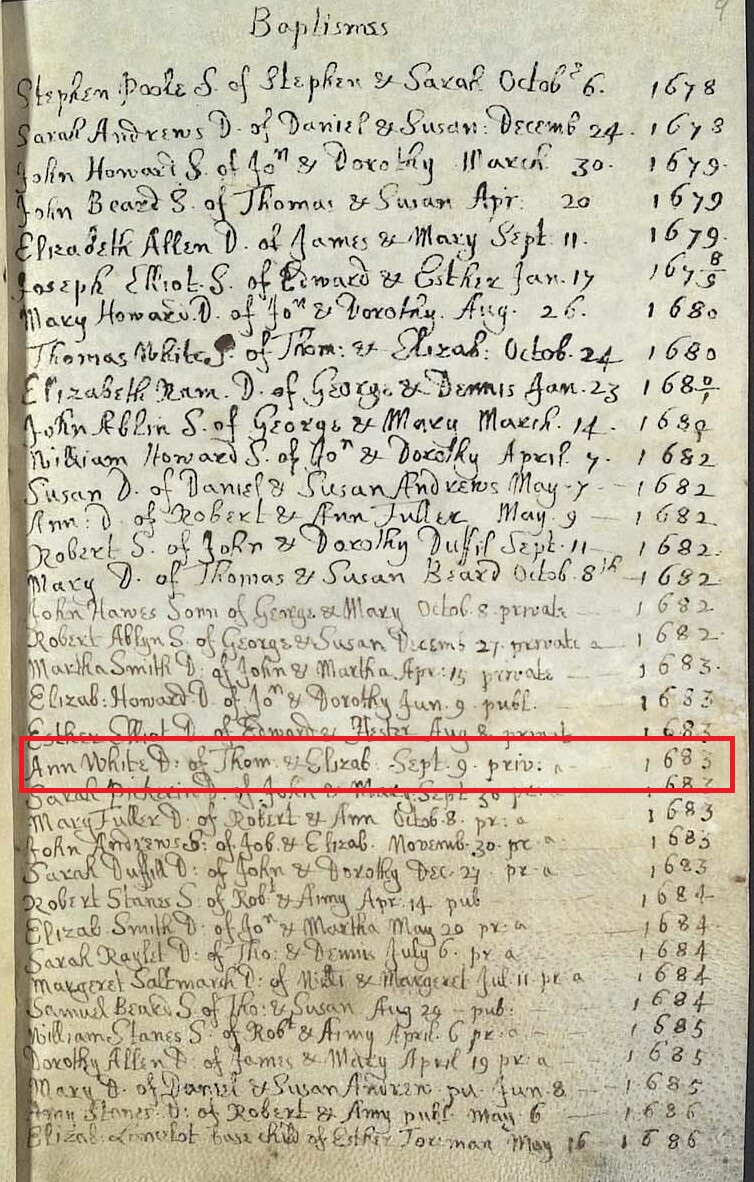 9
Baptismss
Stephen Poole S. of Stephen & Sarah Octobr 6. 1678
Sarah Andrews D. of Daniel & Susan: Decemb 24. 1678
John Howard S. of Jon & Dorothy March 30. 1679.
John Beard S. of Thomas & Susan Apr: 20 1679
Elizabeth Allen D. of James & Mary Sept. 11. 1679.
Joseph Elliot. S. of Edward & Esther Jan. 17 167 8/9
Mary Howard. D. of Jon & Dorothy. Aug. 26. 1680
Thomas White S. of Thom: & Elizab: Octob. 24 1680
Elizabeth Ram. D. of George & Dennis Jan. 23 168 0/1
John Ablin S. of George & Mary March. 14. 168
William Howard S. of Jon & Dorothy April. 7. 1682
Susan D. of Daniel & Susan Andrews May 7 — 1682
Ann: D. of Robert & Ann Fuller May. 9 — 1682
Robert S. of John & Dorothy Duffil Sept. 11 — 1682.
Mary D. of Thomas & Susan Beard Octob. 8th — 1682
John Hawes Sonn of George & Mary Octob. 8 private — 1682
Robert Ablyn S. of George & Susan Decemb 27. private a — 1682
Martha Smith D: of John & Martha Apr: 15 private — 1683.
Elizab: Howard D. of Jon & Dorothy Jun. 9 publ. — 1683
Esther Elliot D. of Edward & Hester Aug 8 privat 1683
Ann White D: of Thom. & Elizab: Sept. 9. priv: a — 1683
Sarah D: of John & Mary Sept 30 pr: a 1683
Mary Fuller D. of Robert & Ann Octob. 8. pr: a 1683
John Andrews S: of Job. & Elizab. Novemb. 30. pr a 1683
Sarah Duffill D: of John & Dorothy Dec. 27 pr a 1683
Robert Stanes S. of Robt & Aimy Apr. 14 pub — 1684
Elizab. Smith D: of Jon & Martha May 20 pr: a 1684
Sarah Raylet D: of Tho: & Dennis July 6. pr a 1684
Margeret Saltmarsh D: of Willi & Margeret Jul. 11 pr a 1684
Samuel Beard S. of Tho: & Susan Aug 24 — pub: — 1684
William Stanes S. of Robt & Aimy April. 6 pr: a 1685
Dorothy Allen D: of James & Mary April 19 pr: a — 1685
Mary D. of Daniel & Susan Andrew pu. Jun. 8 — 1685
Amy Stanes D: of Robert & Amy publ. May 6 — 1686
Elizab. base child of Esther Foreman May 16 1686